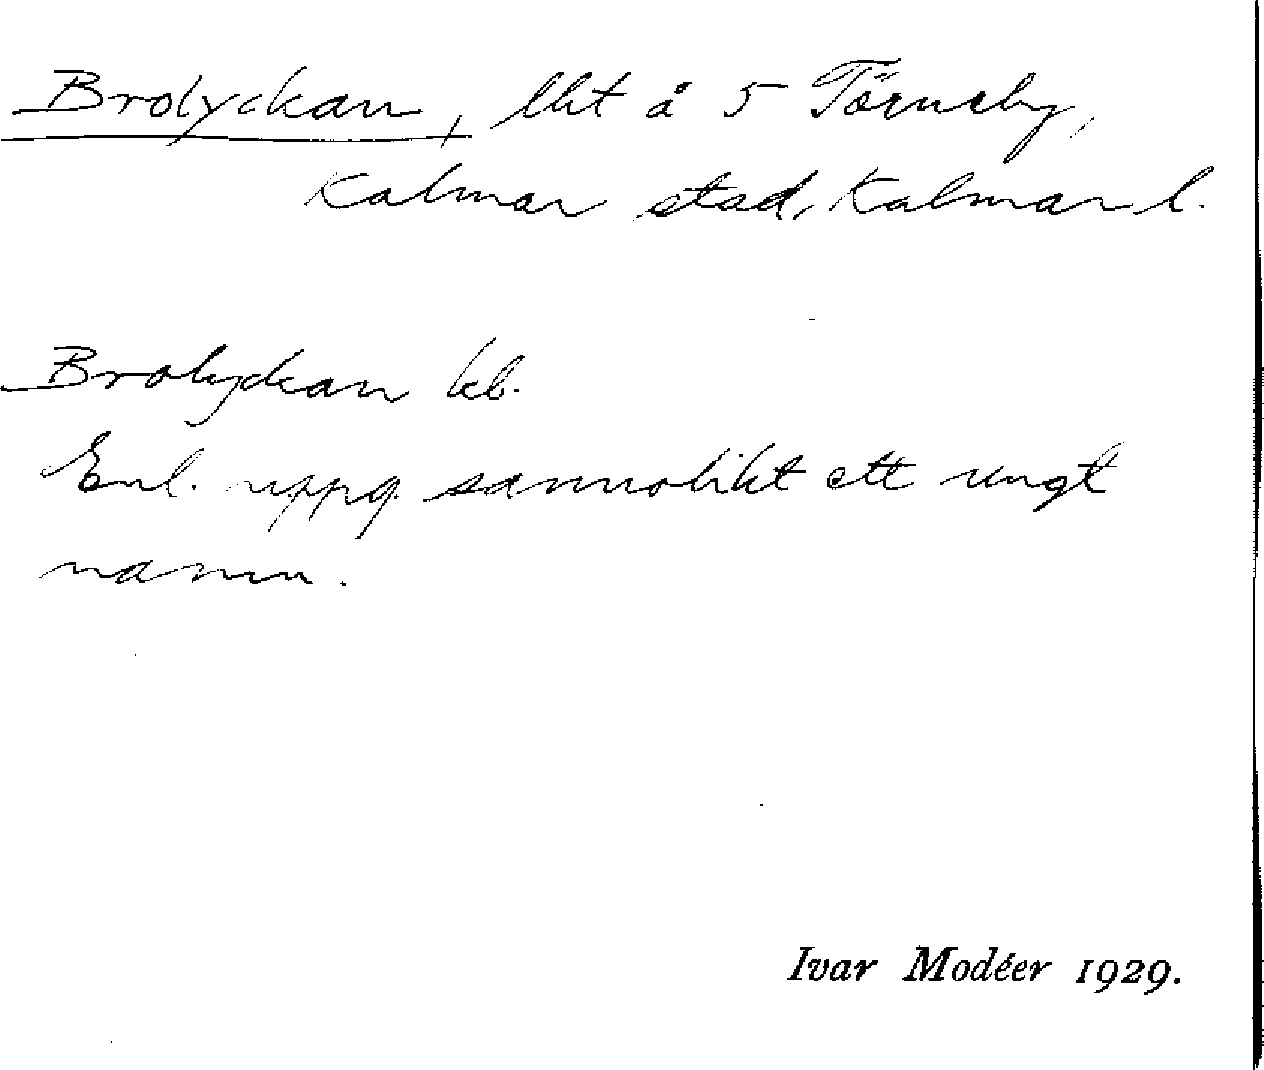 Brolyckan, lht å 5 Törneby,
Kalmar stad, Kalmar l.
Brolyckan kb.
Enl. uppg. sannolikt ett ungt
namn.
Ivar Modéer 1929.